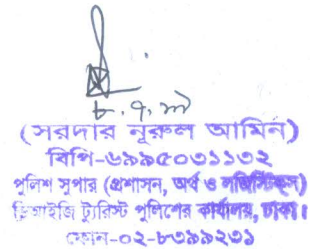 ৮.৭.১৯
(সরদার নূরুল আমিন)
বিপি-৬৯৯৫০৩১১৩২
পুলিশ সুপার (প্রশাসন, অর্থ ও লজিস্টিকস)
ডিআইজি ট্যুরিস্ট পুলিশের কার্যালয়, ঢাকা।
ফোন-০২-৮৩৯৯২৩১